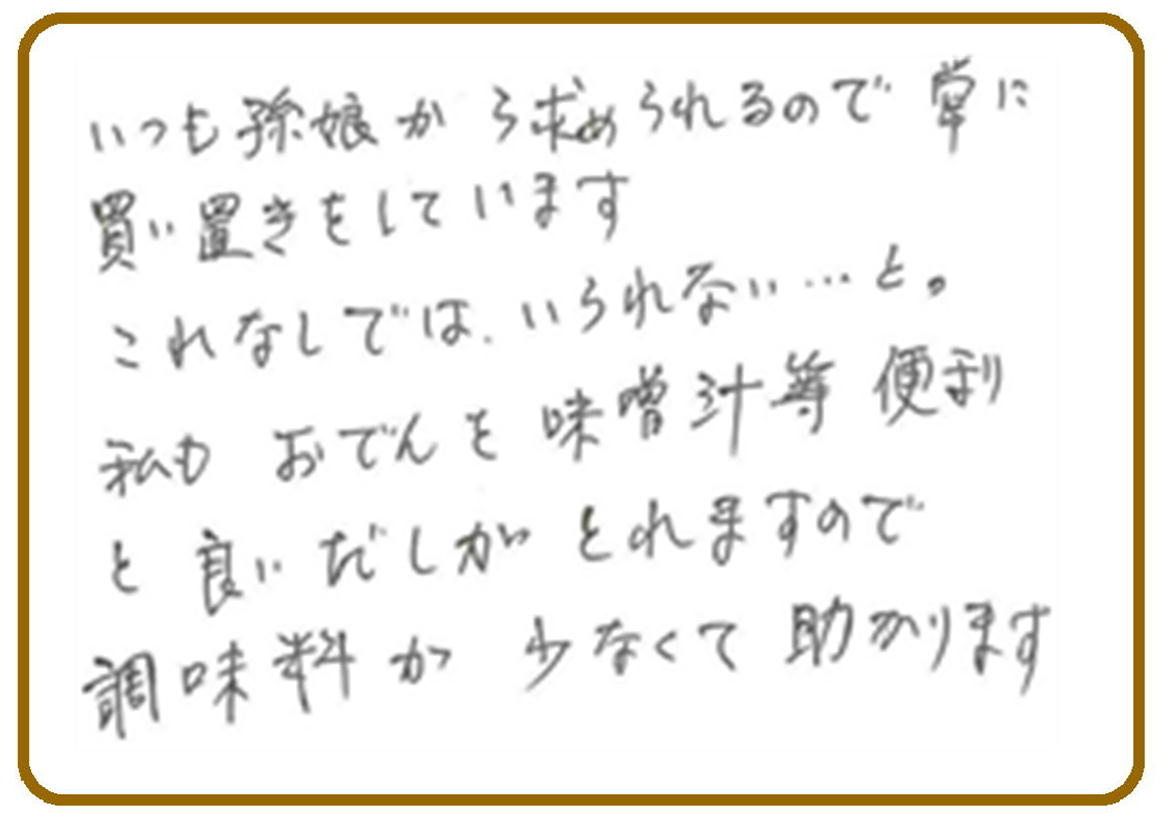 いつも孫娘から求められるので常に
買い置きをしています
これなしでは、いられない…と。
私も おでんを味噌汁等 便利
と 良いだしが とれますので
調味料か 少なくて 助かります